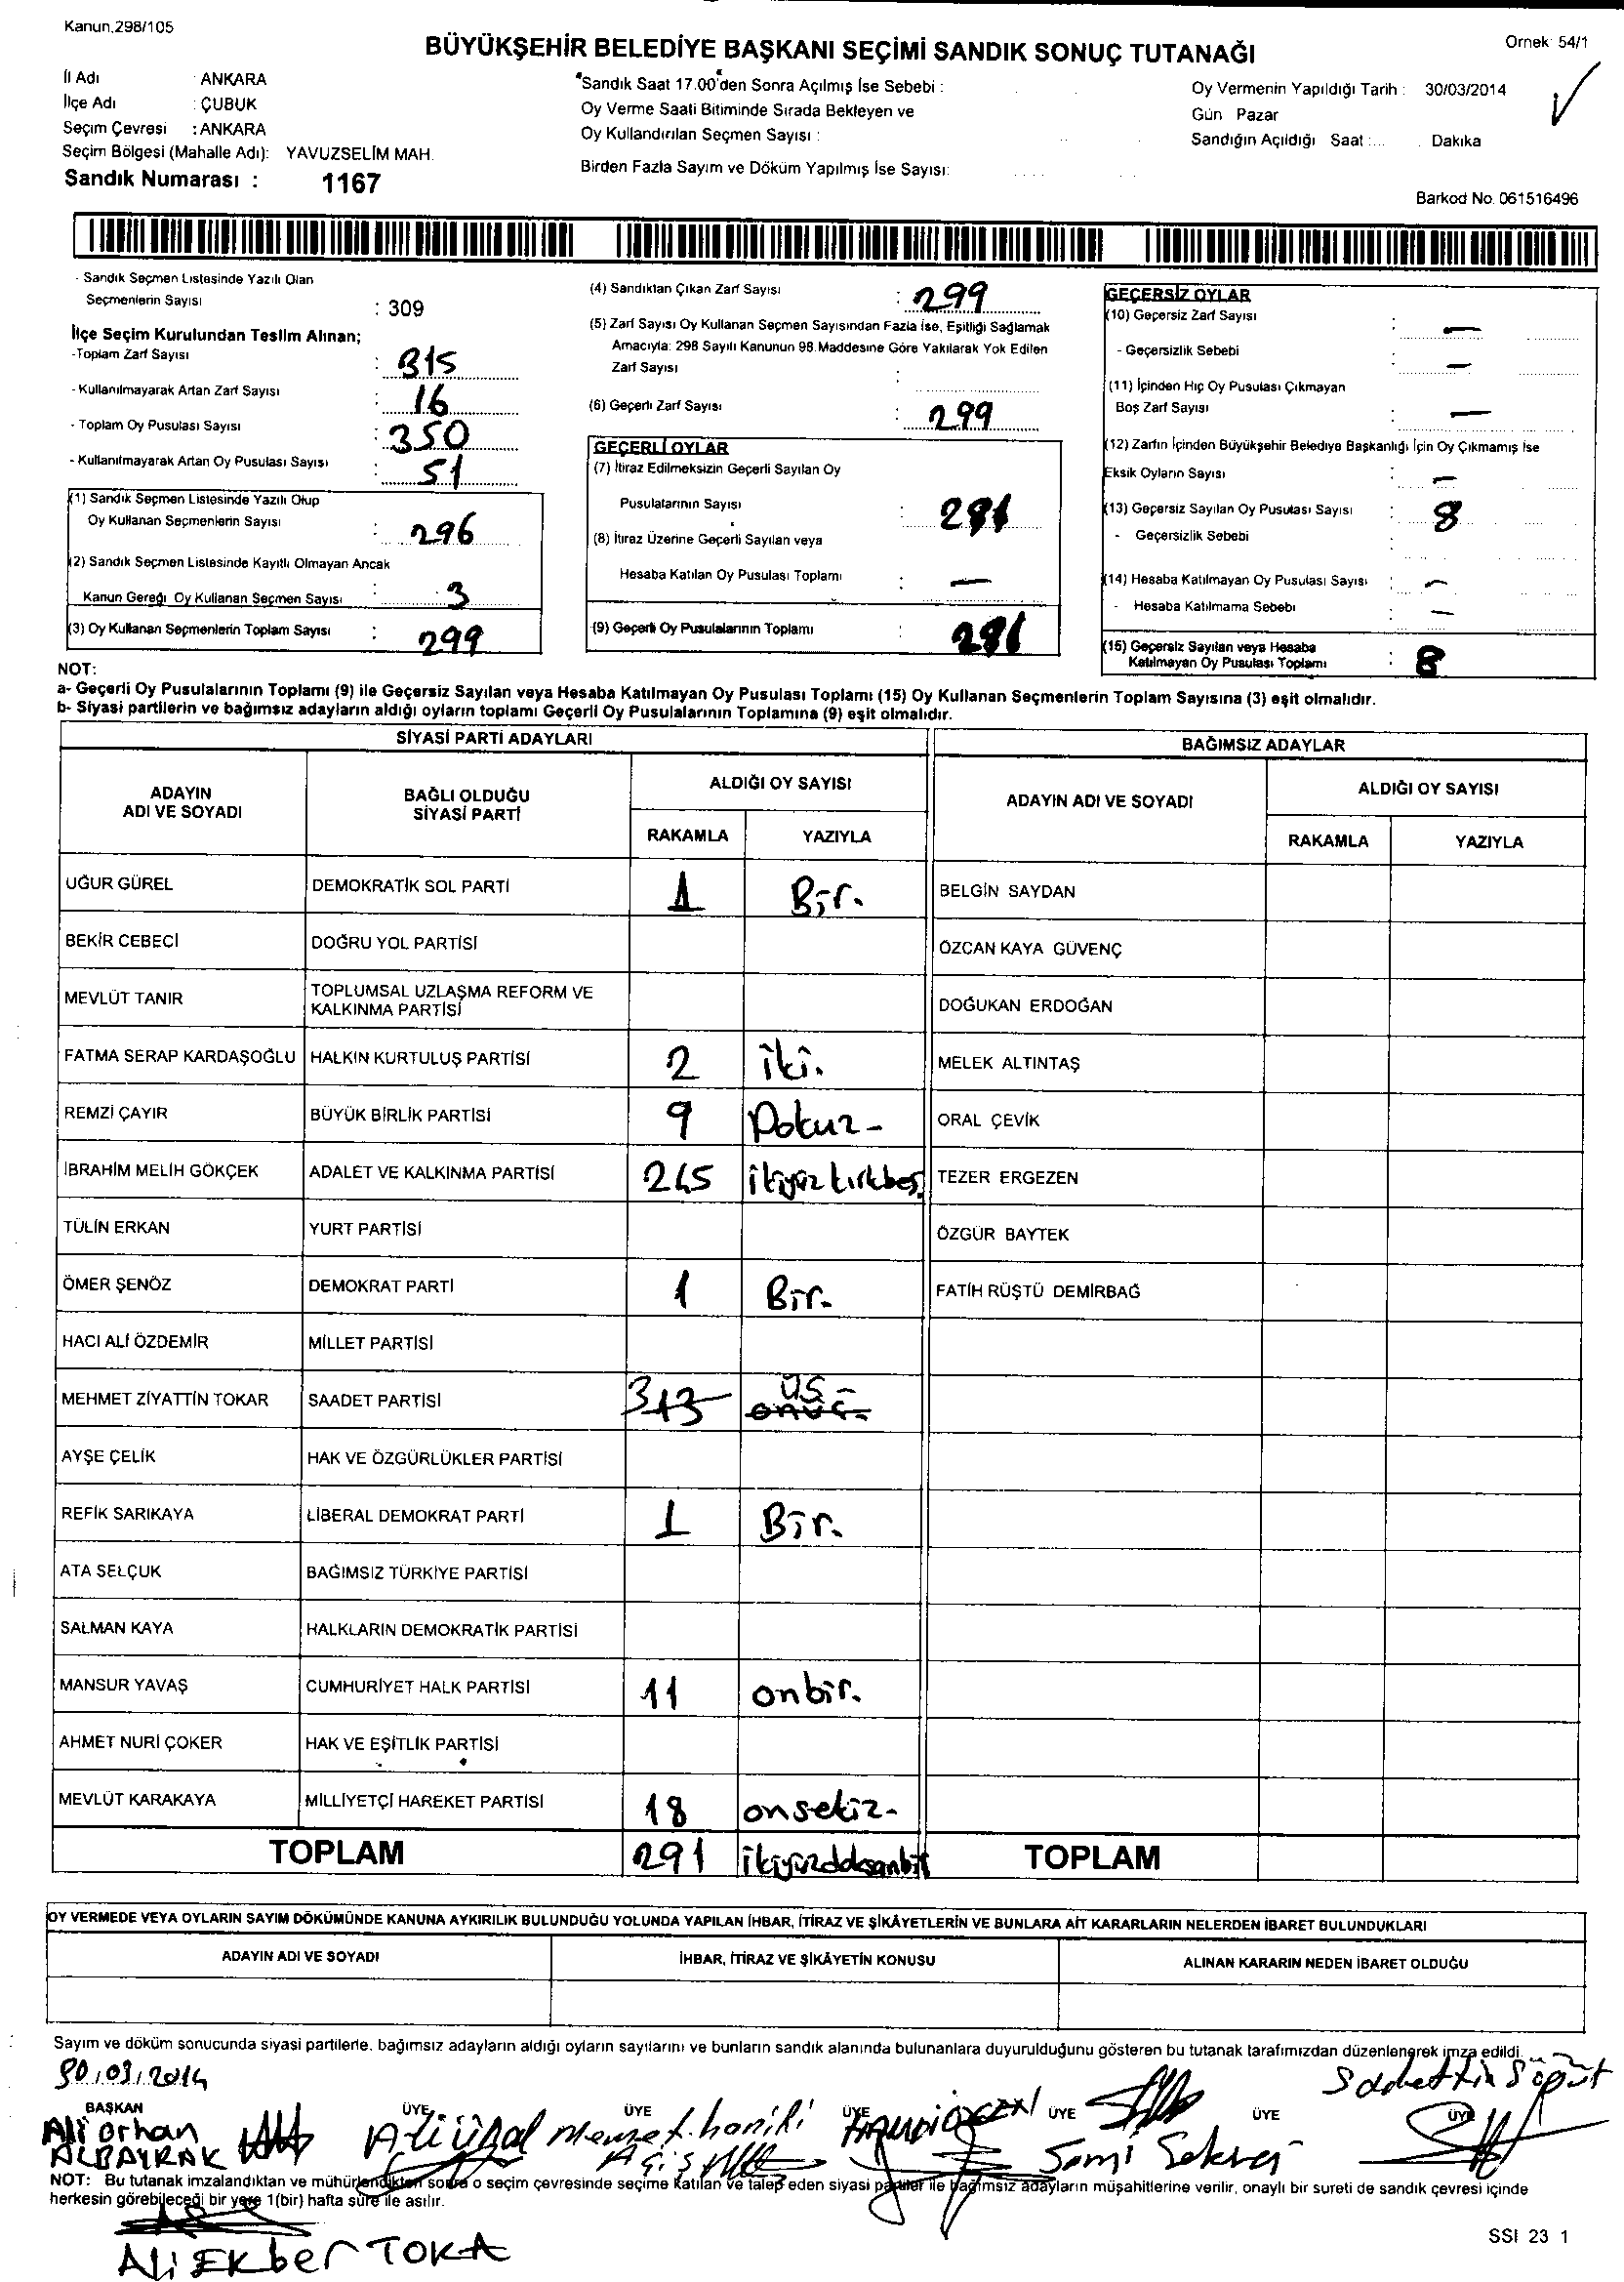 Kanun.298/105
Örnek 54/1
BÜYÜKŞEHİR BELEDİYE BAŞKANI SEÇİMİ SANDIK SONUÇ TUTANAĞI
İl Adı : ANKARA
İlçe Adı : ÇUBUK
Seçim Çevresi : ANKARA
Seçim Bölgesi (Mahalle Adı): YAVUZSELİM MAH.
Sandık Numarası : 1167
Sandık Saat 17.00'den Sonra Açılmış İse Sebebi :
Oy Verme Saati Bitiminde Sırada Bekleyen ve
Oy Kullandırılan Seçmen Sayısı :
Birden Fazla Sayım ve Döküm Yapılmış İse Sayısı:
Oy Vermenin Yapıldığı Tarih : 30/03/2014
Gün Pazar
Sandığın Açıldığı Saat :... Dakika
Barkod No. 061516496
- Sandık Seçmen Listesinde Yazılı Olan
Seçmenlerin Sayısı : 309
İlçe Seçim Kurulundan Teslim Alınan;
-Toplam Zarf Sayısı : 315
- Kullanılmayarak Artan Zarf Sayısı : 16
- Toplam Oy Pusulası Sayısı : 350
- Kullanılmayarak Artan Oy Pusulası Sayısı : 51
(1) Sandık Seçmen Listesinde Yazılı Olup
Oy Kullanan Seçmenlerin Sayısı : 296
(2) Sandık Seçmen Listesinde Kayıtlı Olmayan Ancak
Kanun Gereği Oy Kullanan Seçmen Sayısı : 3
(3) Oy Kullanan Seçmenlerin Toplam Sayısı : 299
(4) Sandıktan Çıkan Zarf Sayısı : 299
(5) Zarf Sayısı Oy Kullanan Seçmen Sayısından Fazla İse, Eşitliği Sağlamak
Amacıyla: 298 Sayılı Kanunun 98.Maddesine Göre Yakılarak Yok Edilen
Zarf Sayısı :
(6) Geçerli Zarf Sayısı : 299
GEÇERLİ OYLAR
(7) İtiraz Edilmeksizin Geçerli Sayılan Oy
Pusulalarının Sayısı :
(8) İtiraz Üzerine Geçerli Sayılan veya
Hesaba Katılan Oy Pusulası Toplamı : —
(9) Geçerli Oy Pusulalarının Toplamı :
GEÇERSİZ OYLAR
(10) Geçersiz Zarf Sayısı : —
- Geçersizlik Sebebi : —
(11) İçinden Hiç Oy Pusulası Çıkmayan
Boş Zarf Sayısı : —
(12) Zarfın İçinden Büyükşehir Belediye Başkanlığı İçin Oy Çıkmamış İse
Eksik Oyların Sayısı : —
(13) Geçersiz Sayılan Oy Pusulası Sayısı : 8
- Geçersizlik Sebebi :
(14) Hesaba Katılmayan Oy Pusulası Sayısı : —
- Hesaba Katılmama Sebebi : —
(15) Geçersiz Sayılan veya Hesaba
Katılmayan Oy Pusulası Toplamı : 8
NOT:
a- Geçerli Oy Pusulalarının Toplamı (9) ile Geçersiz Sayılan veya Hesaba Katılmayan Oy Pusulası Toplamı (15) Oy Kullanan Seçmenlerin Toplam Sayısına (3) eşit olmalıdır.
b- Siyasi partilerin ve bağımsız adayların aldığı oyların toplamı Geçerli Oy Pusulalarının Toplamına (9) eşit olmalıdır.
SİYASİ PARTİ ADAYLARI
BAĞIMSIZ ADAYLAR
ADAYIN ADI VE SOYADI
BAĞLI OLDUĞU SİYASİ PARTİ
ALDIĞI OY SAYISI
RAKAMLA YAZIYLA
ADAYIN ADI VE SOYADI
ALDIĞI OY SAYISI
RAKAMLA YAZIYLA
UĞUR GÜREL DEMOKRATİK SOL PARTİ 1 Bir. BELGİN SAYDAN
BEKİR CEBECİ DOĞRU YOL PARTİSİ ÖZCAN KAYA GÜVENÇ
MEVLÜT TANIR TOPLUMSAL UZLAŞMA REFORM VE KALKINMA PARTİSİ DOĞUKAN ERDOĞAN
FATMA SERAP KARDAŞOĞLU HALKIN KURTULUŞ PARTİSİ 2 iki. MELEK ALTINTAŞ
REMZİ ÇAYIR BÜYÜK BİRLİK PARTİSİ 9 Dokuz- ORAL ÇEVİK
İBRAHİM MELİH GÖKÇEK ADALET VE KALKINMA PARTİSİ 245 ikiyüzkırkbeş TEZER ERGEZEN
TÜLİN ERKAN YURT PARTİSİ ÖZGÜR BAYTEK
ÖMER ŞENÖZ DEMOKRAT PARTİ 1 Bir. FATİH RÜŞTÜ DEMİRBAĞ
HACI ALİ ÖZDEMİR MİLLET PARTİSİ
MEHMET ZİYATTİN TOKAR SAADET PARTİSİ 3 13 üç- onüç-
AYŞE ÇELİK HAK VE ÖZGÜRLÜKLER PARTİSİ
REFİK SARIKAYA LİBERAL DEMOKRAT PARTİ 1 Bir.
ATA SELÇUK BAĞIMSIZ TÜRKİYE PARTİSİ
SALMAN KAYA HALKLARIN DEMOKRATİK PARTİSİ
MANSUR YAVAŞ CUMHURİYET HALK PARTİSİ 11 onbir.
AHMET NURİ ÇOKER HAK VE EŞİTLİK PARTİSİ
MEVLÜT KARAKAYA MİLLİYETÇİ HAREKET PARTİSİ 18 onsekiz-
TOPLAM 291 ikiyüzdoksanbir TOPLAM
OY VERMEDE VEYA OYLARIN SAYIM DÖKÜMÜNDE KANUNA AYKIRILIK BULUNDUĞU YOLUNDA YAPILAN İHBAR, İTİRAZ VE ŞİKÂYETLERİN VE BUNLARA AİT KARARLARIN NELERDEN İBARET BULUNDUKLARI
ADAYIN ADI VE SOYADI İHBAR, İTİRAZ VE ŞİKÂYETİN KONUSU ALINAN KARARIN NEDEN İBARET OLDUĞU
Sayım ve döküm sonucunda siyasi partilerle, bağımsız adayların aldığı oyların sayılarını ve bunların sandık alanında bulunanlara duyurulduğunu gösteren bu tutanak tarafımızdan düzenlenerek imza edildi.
30.03.2014
BAŞKAN ÜYE ÜYE ÜYE ÜYE ÜYE ÜYE
Ali orhan ALBAYRAK
Ali ünal
Sami
NOT: Bu tutanak imzalandıktan ve mühürlendikten sonra o seçim çevresinde seçime katılan ve talep eden siyasi partiler ile bağımsız adayların müşahitlerine verilir, onaylı bir sureti de sandık çevresi içinde
herkesin görebileceği bir yere 1(bir) hafta süre ile asılır.
Ali EKber TOKA
SSI 23 1